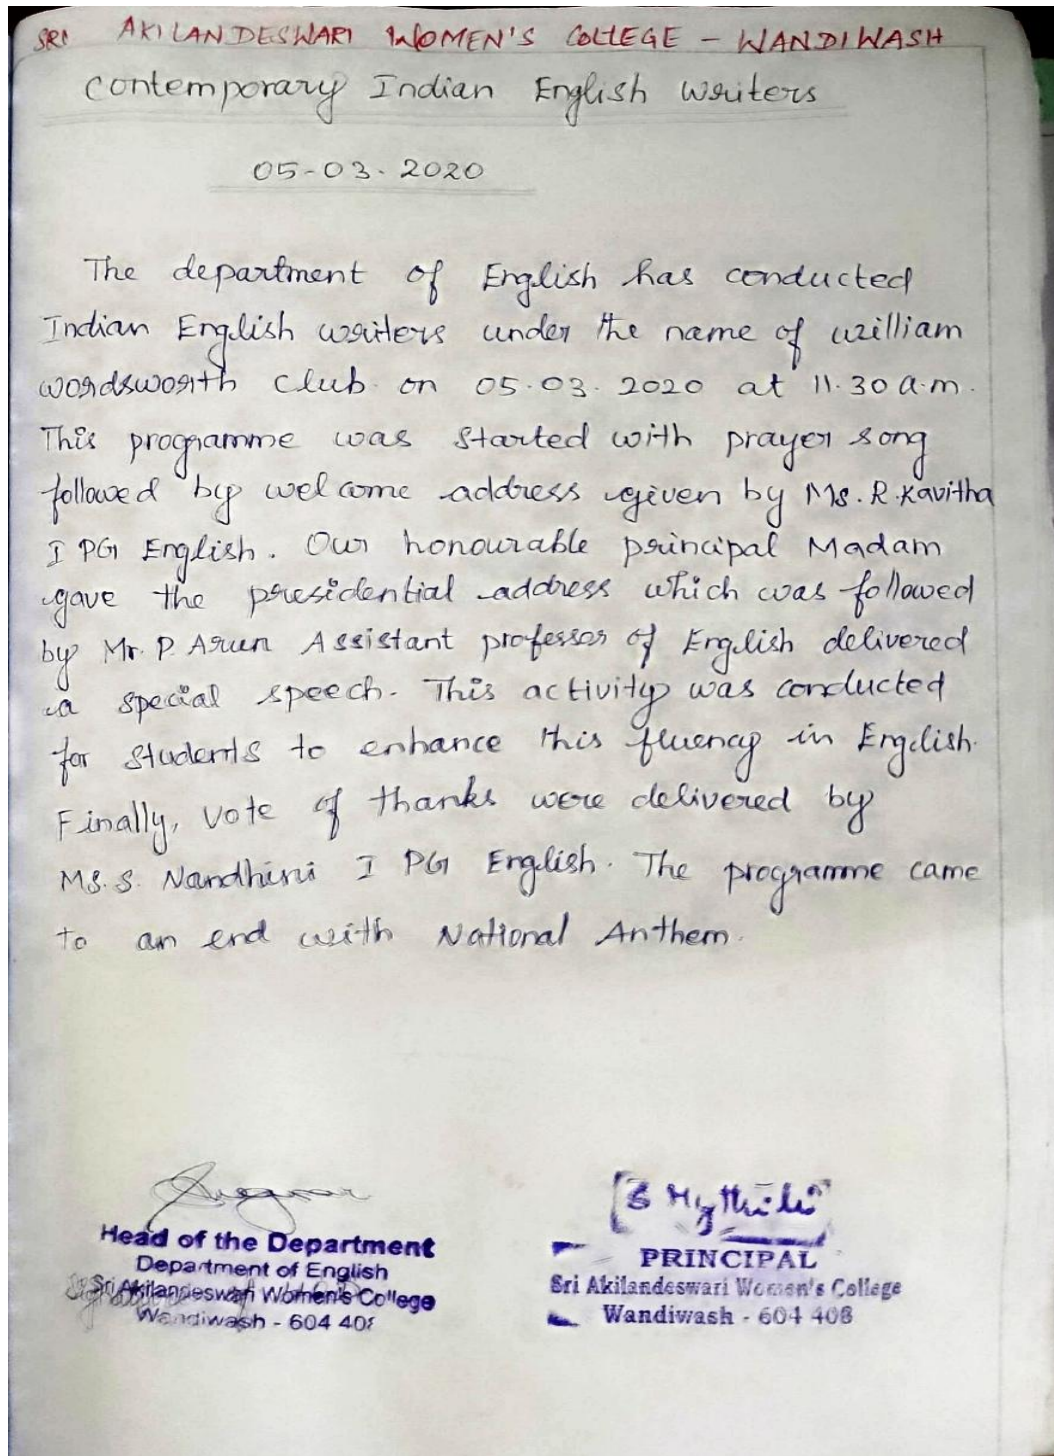 SRI AKILANDESWARI WOMEN'S COLLEGE - WANDIWASH
Contemporary Indian English Writers
05-03-2020
The department of English has conducted
Indian English writers under the name of william
wordsworth club on 05.03.2020 at 11.30 a.m.
This programme was started with prayer song
followed by welcome address given by Ms. R. Kavitha
I PG English. Our honourable principal Madam
gave the presidential address which was followed
by Mr. P. Arun Assistant professor of English delivered
a special speech. This activity was conducted
for students to enhance this fluency in English.
Finally, vote of thanks were delivered by
Ms. S. Nandhini I PG English. The programme came
to an end with National Anthem.
S Mythili
Head of the Department
Department of English
Sri Akilandeswari Women's College
Wandiwash - 604 408
PRINCIPAL
Sri Akilandeswari Women's College
Wandiwash - 604 408